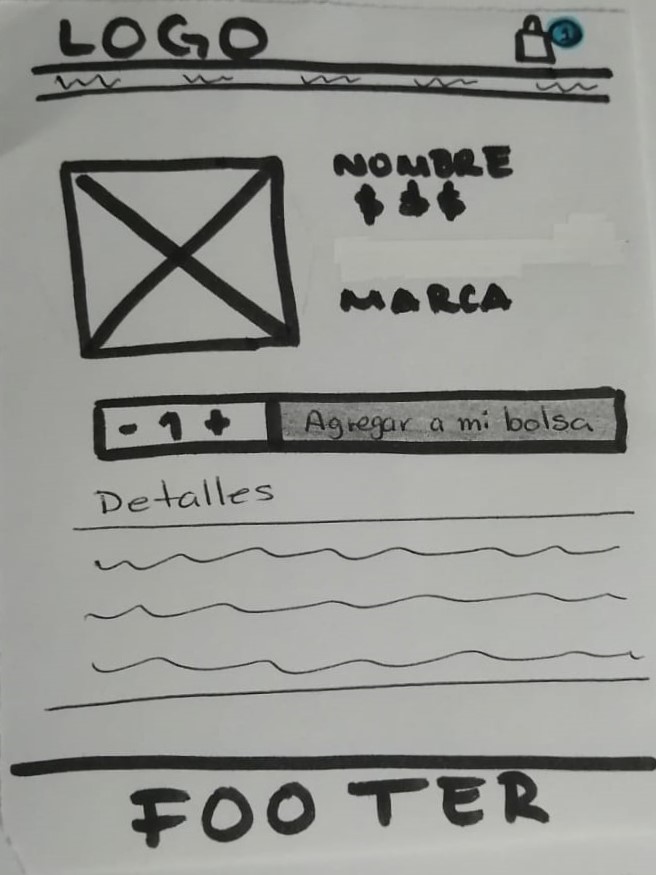 LOGO
1
NOMBRE
$ $ $
MARCA
- 1 + Agregar a mi bolsa
Detalles
FOOTER